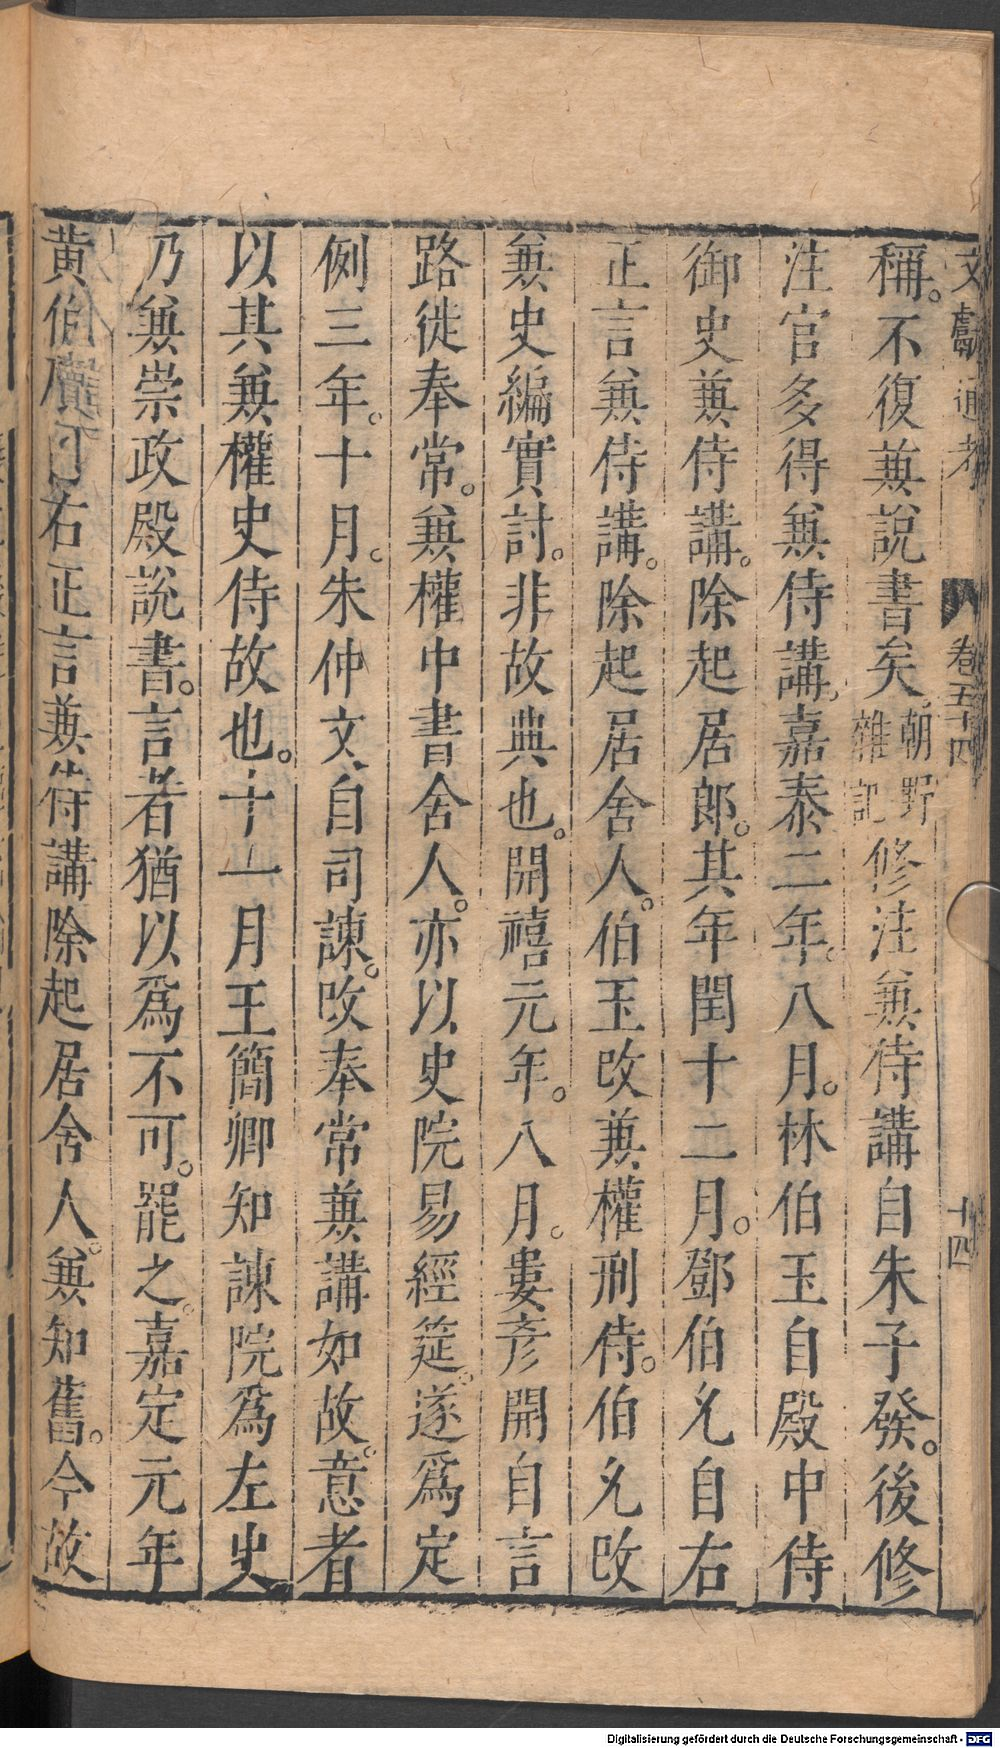 文獻通考 卷五十四 十四
稱。不復兼說書矣。朝野雜記修注兼侍講自朱子發。後修
注官多得兼侍講。嘉泰二年。八月。林伯玉自殿中侍
御史兼侍講。除起居郎。其年閏十二月。鄧伯允自右
正言兼侍講。除起居舍人。伯玉改兼權刑侍。伯允改
兼史編實討。非故典也。開禧元年。八月。婁彥開自言
路徙奉常。兼權中書舍人。亦以史院易經筵。遂爲定
例三年。十月。朱仲文自司諫。改奉常兼講如故。意者
以其兼權史侍故也。十一月王簡卿知諫院爲左史
乃兼崇政殿說書。言者猶以爲不可。罷之。嘉定元年
黃伯 右正言兼侍講除起居舍人。兼知舊。今故
Digitalisierung gefördert durch die Deutsche Forschungsgemeinschaft - DFG